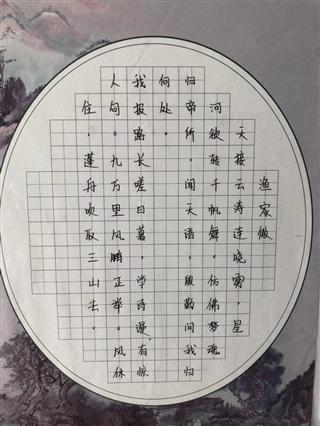 渔家傲
天接云涛连晓雾，星
河欲转千帆舞。仿佛梦魂
归帝所，闻天语，殷勤问我归
何处。
我报路长嗟日暮，学诗漫有惊
人句。九万里风鹏正举。风休
住，蓬舟吹取三山去。